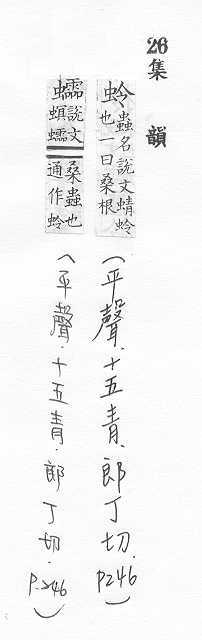 26
集韻
蛉
蟲名說文蜻蛉
也一曰桑根
(平聲.十五青.郎丁切.P246)
蠕
說文
螟蠕
桑蟲也
通作蛉
(平聲.十五青.郎丁切.P.246)